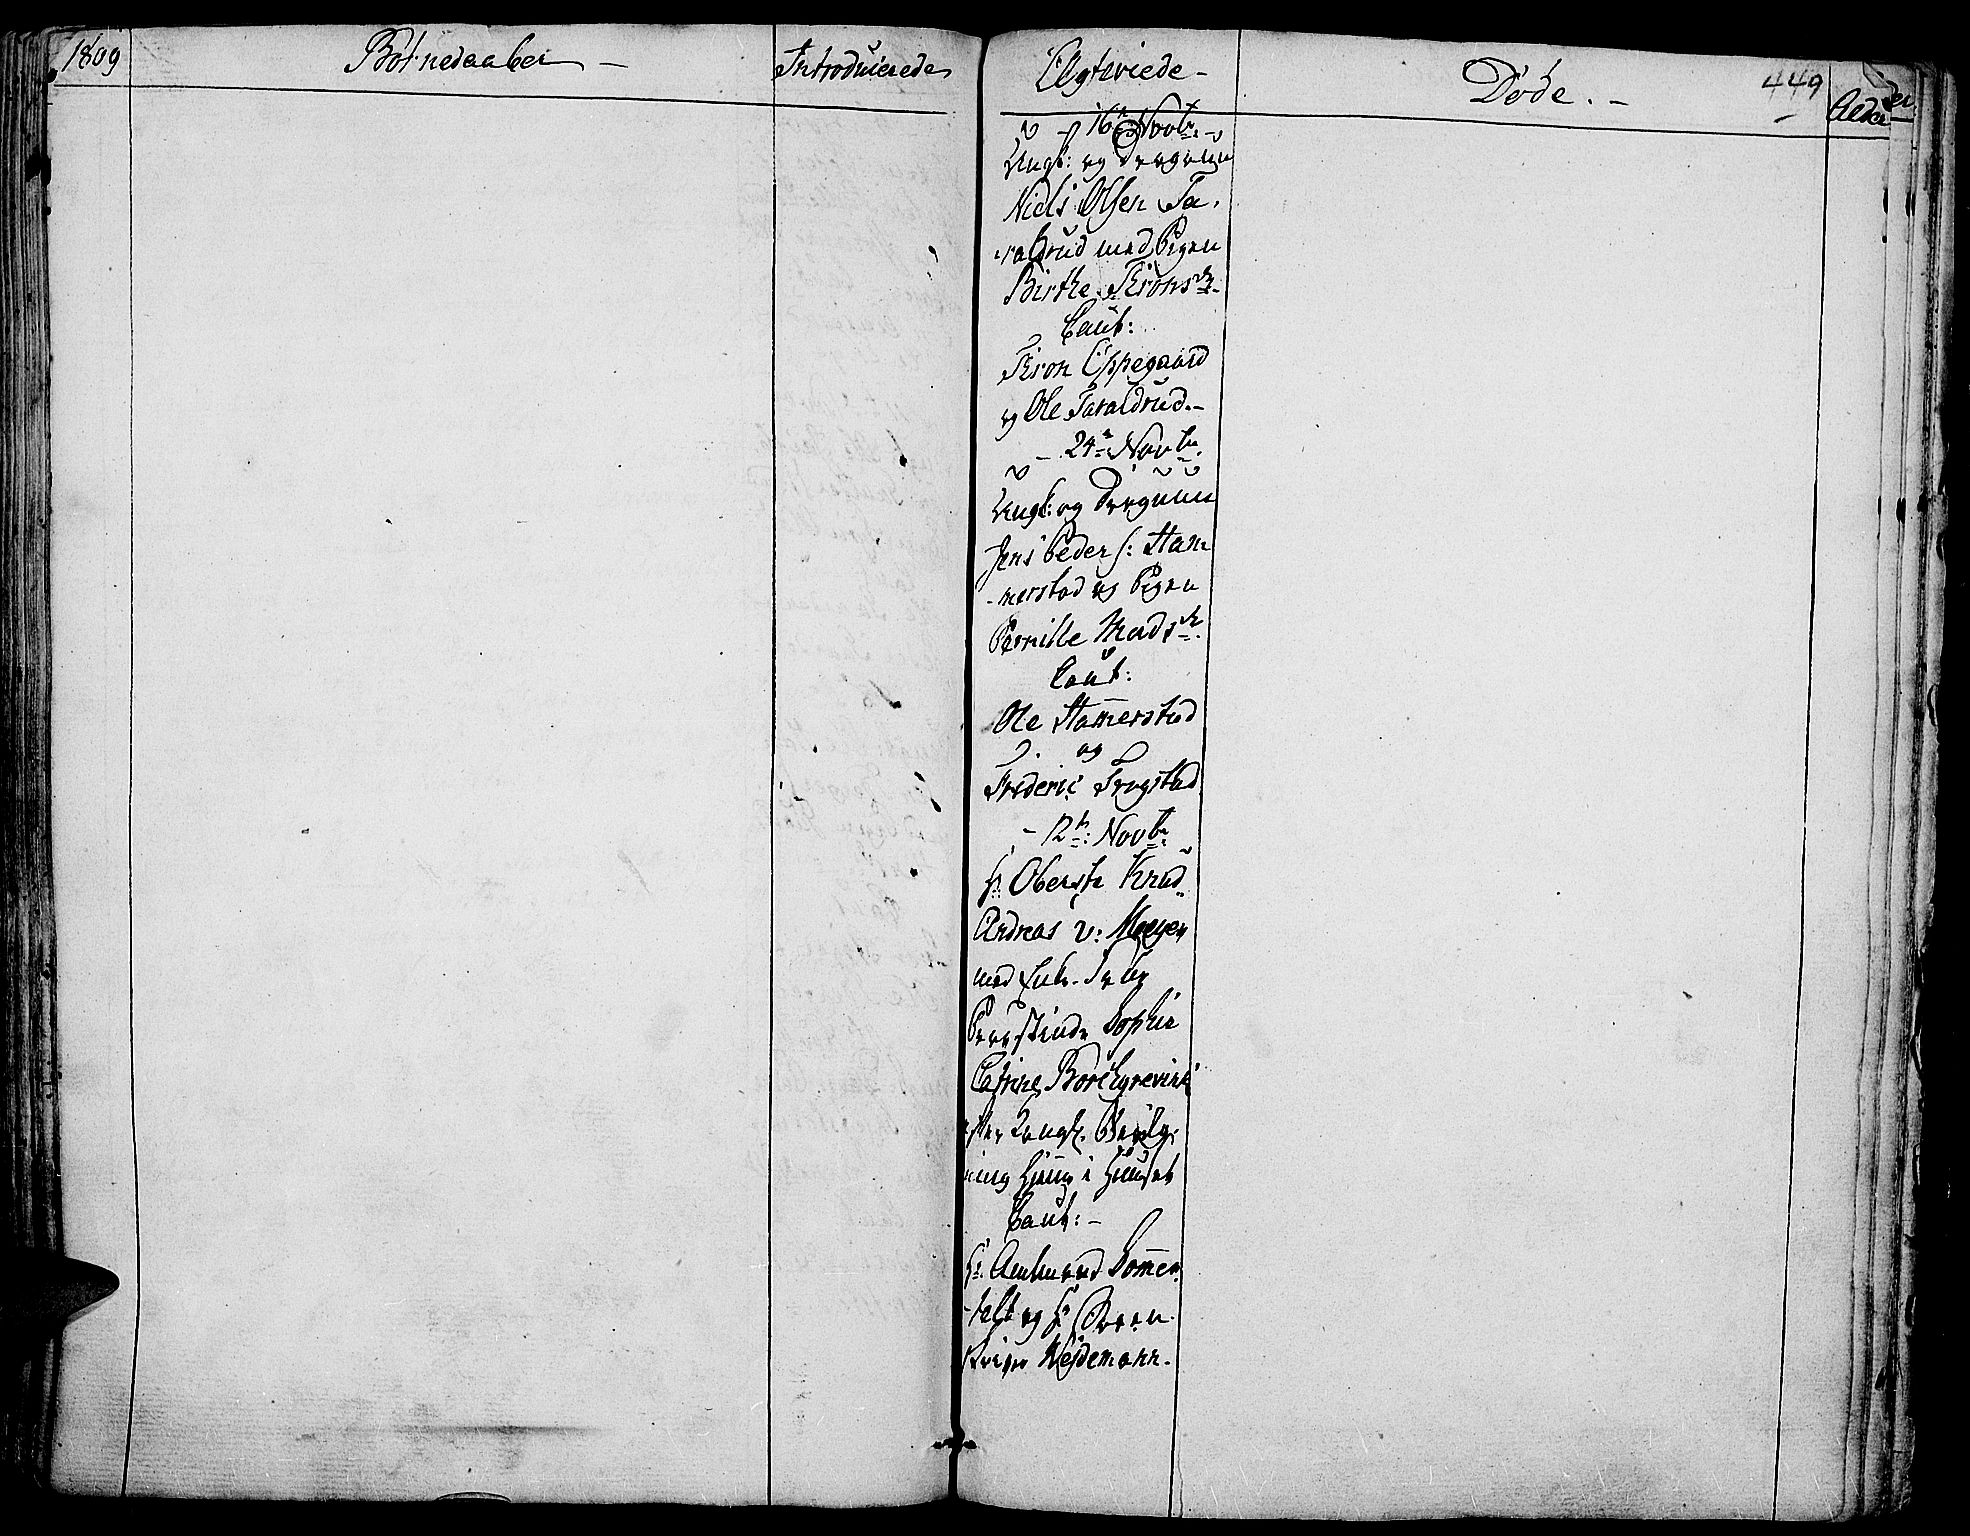 1809
Børnedaaber –
Introducerede
Ægteviede –
Døde. –
449
Alder
– 16n Novbr: –
Ungk: og Dragoun
Niels Olsen Ta,
raldrud med Pigen
Birthe Tronsdr.
Caut:
Tron Oppegaard
og Ole Taraldrud. –
– 24n Novbr.
Ungk: og Dragoun
Jens Peders: Ham
merstad og Pigen
Pernille Madsdr.
Caut:
Ole Ham̄erstad
og
Frideric Frogstad
– 12te: Novbr:
Hr. Oberste Knud
Andreas v: Meyer
med Enke-Frue
Sophie
Catrine Borchgrevink
efter Kongl. Bevilg,
ning hjemme i Huuset
Caut: –
Hr. Amtmand Som̄en,
felt og Hr Soren,
skriver Wejdemann.